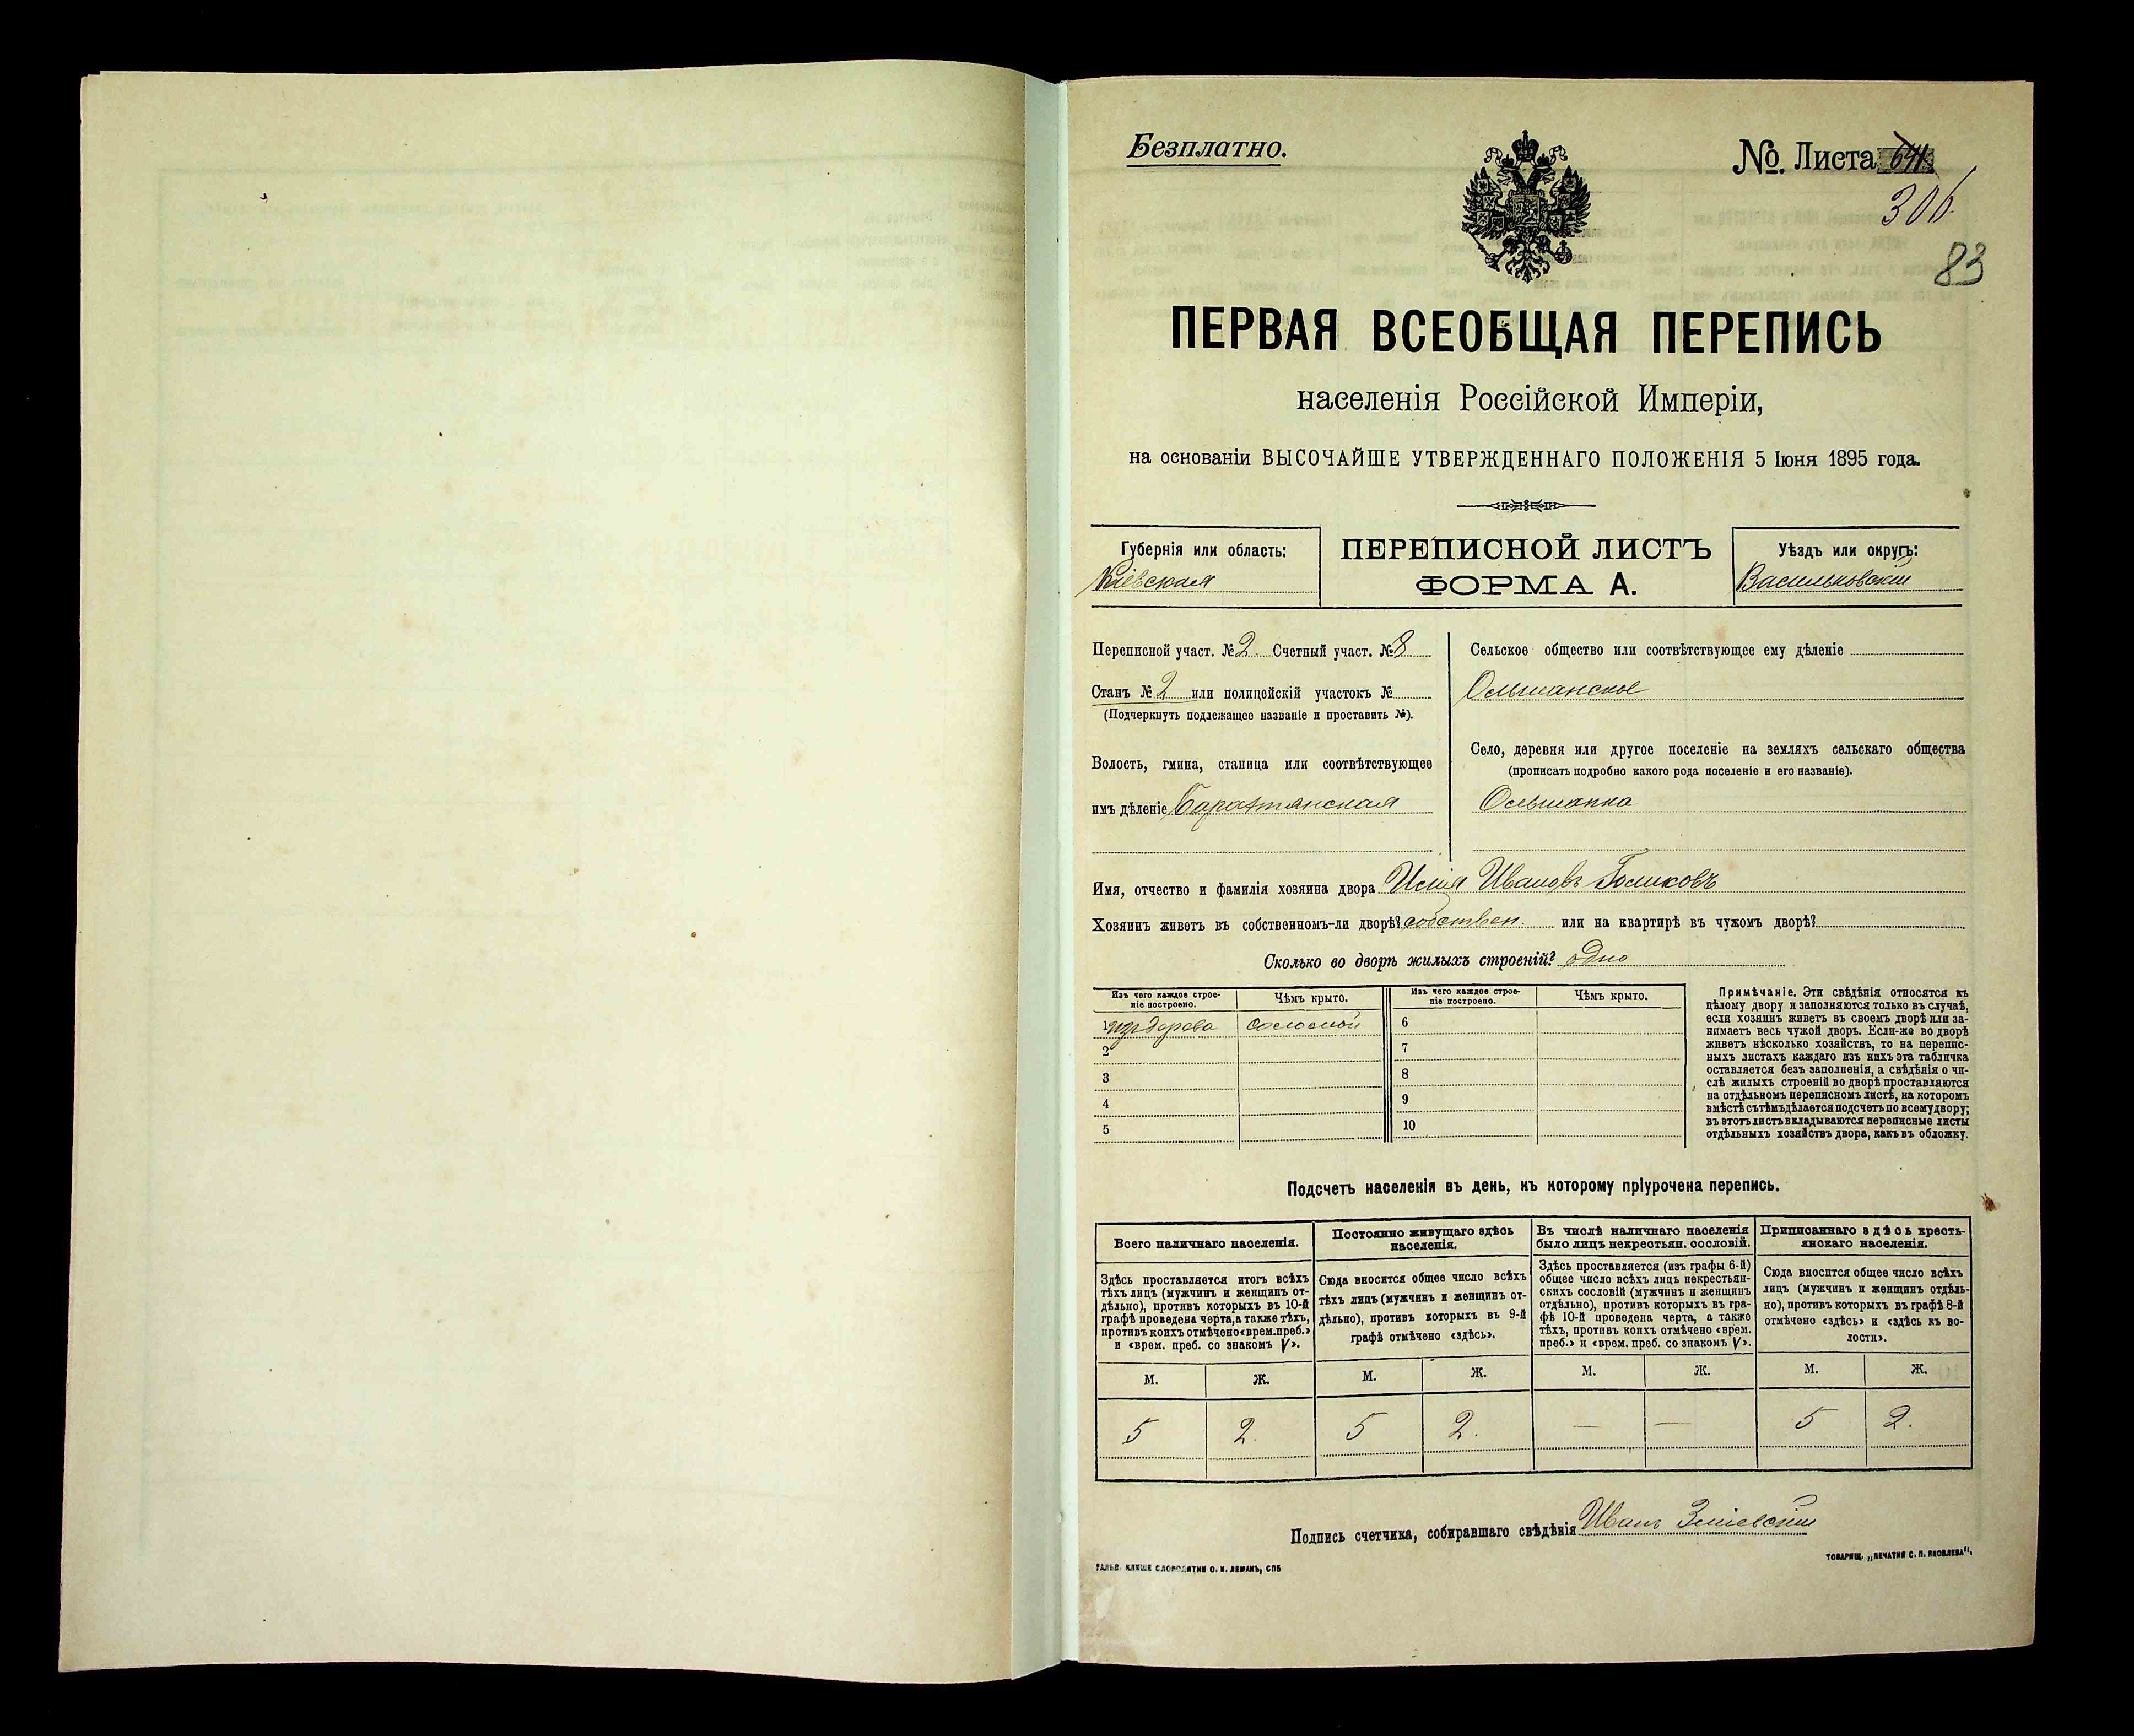 Безплатно.
№. Листа 641.
306.
83
ПЕРВАЯ ВСЕОБЩАЯ ПЕРЕПИСЬ
населенія Россійской Имперіи,
на основаніи ВЫСОЧАЙШЕ УТВЕРЖДЕННАГО ПОЛОЖЕНІЯ 5 Іюня 1895 года.
Губернія или область:
Кіевская
ПЕРЕПИСНОЙ ЛИСТЪ
ФОРМА А.
Уѣздъ или округъ:
Васильковскій
Переписной участ. № 2. Счетный участ. № 8
Станъ № 2 или полицейскій участокъ №
(Подчеркнуть подлежащее названіе и проставить №).
Волость, гмина, станица или соотвѣтствующее
имъ дѣленіе
Сельское общество или соотвѣтствующее ему дѣленіе
Ольшанское
Село, деревня или другое поселеніе на земляхъ сельскаго общества
(прописать подробно какого рода поселеніе и его названіе).
Ольшанка
Имя, отчество и фамилія хозяина двора Илія Ивановъ Голиковъ
Хозяинъ живетъ въ собственномъ-ли дворѣ? собствен. или на квартирѣ въ чужомъ дворѣ?
Сколько во дворѣ жилыхъ строеній? одно
Изъ чего каждое строе-
ніе построено.
Чѣмъ крыто.
Изъ чего каждое строе-
ніе построено.
Чѣмъ крыто.
1 изъ дерева соломой 6
2 7
3 8
4 9
5 10
Примѣчаніе. Эти свѣдѣнія относятся къ
цѣлому двору и заполняются только въ случаѣ,
если хозяинъ живетъ въ своемъ дворѣ или за-
нимаетъ весь чужой дворъ. Если-же во дворѣ
живетъ нѣсколько хозяйствъ, то на перепис-
ныхъ листахъ каждаго изъ нихъ эта табличка
оставляется безъ заполненія, а свѣдѣнія о чи-
слѣ жилыхъ строеній во дворѣ проставляются
на отдѣльномъ переписномъ листѣ, на которомъ
вмѣстѣ съ тѣмъ дѣлается подсчетъ по всему двору;
въ этотъ листъ вкладываются переписные листы
отдѣльныхъ хозяйствъ двора, какъ въ обложку.
Подсчетъ населенія въ день, къ которому пріурочена перепись.
Всего наличнаго населенія.
Здѣсь проставляется итогъ всѣхъ
тѣхъ лицъ (мужчинъ и женщинъ от-
дѣльно), противъ которыхъ въ 10-й
графѣ проведена черта, а также тѣхъ,
противъ коихъ отмѣчено «врем. преб.»
и «врем. преб. со знакомъ V».
Постоянно живущаго здѣсь
населенія.
Сюда вносится общее число всѣхъ
тѣхъ лицъ (мужчинъ и женщинъ от-
дѣльно), противъ которыхъ въ 9-й
графѣ отмѣчено «здѣсь».
Въ числѣ наличнаго населенія
было лицъ некрестьян. сословій.
Здѣсь проставляется (изъ графы 6-й)
общее число всѣхъ лицъ некрестьян-
скихъ сословій (мужчинъ и женщинъ
отдѣльно), противъ которыхъ въ гра-
фѣ 10-й проведена черта, а также
тѣхъ, противъ коихъ отмѣчено «врем.
преб.» и «врем. преб. со знакомъ V».
Приписаннаго здѣсь кресть-
янскаго населенія.
Сюда вносится общее число всѣхъ
лицъ (мужчинъ и женщинъ отдѣль-
но), противъ которыхъ въ графѣ 8-й
отмѣчено «здѣсь» и «здѣсь къ во-
лости».
М. Ж. М. Ж. М. Ж. М. Ж.
5 2. 5 2. — — 5 2.
Подпись счетчика, собиравшаго свѣдѣнія Иванъ
ГАЛЬВ. КЛИШЕ СЛОВОЛИТНИ О. И. ЛЕМАНЪ, СПБ
ТОВАРИЩ. „ПЕЧАТНЯ С. П. ЯКОВЛЕВА".